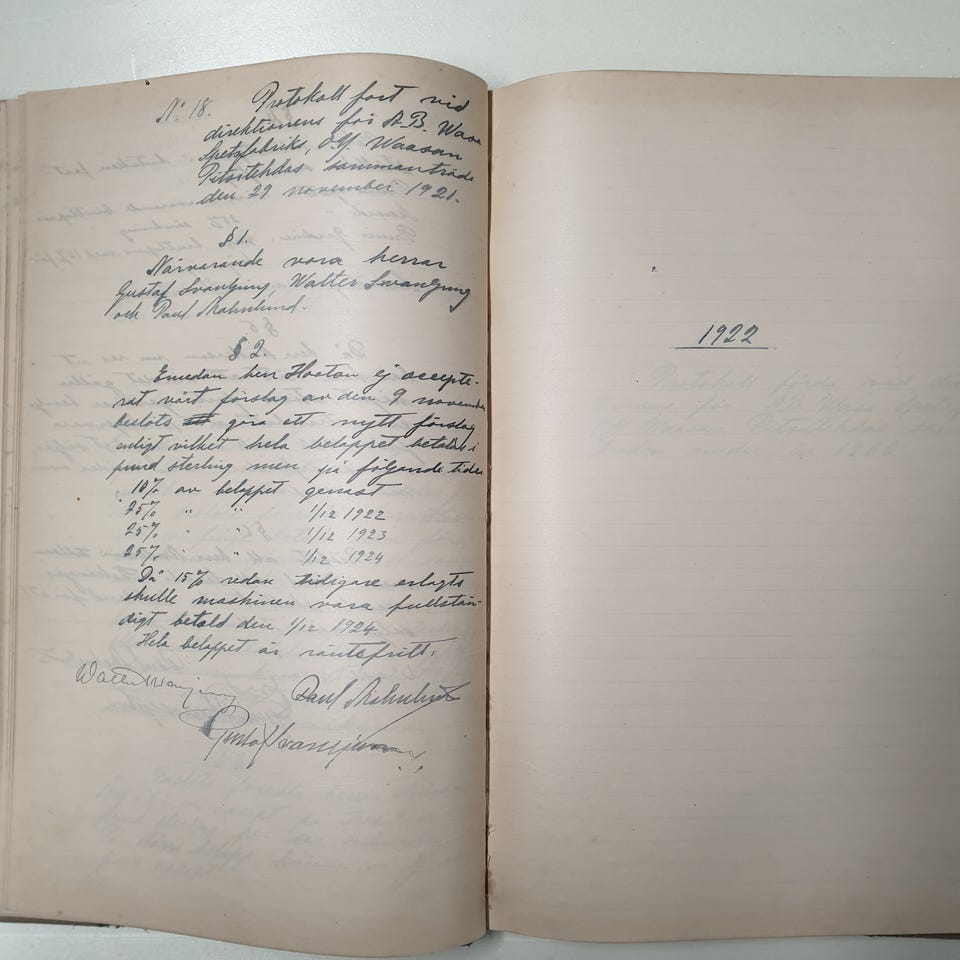 No 18. Protokoll fört vid
direktionens för A.B. Wasa
Spetsfabriks, O.Y. Waasan
Pitsitehdas sammanträde
den 29 november 1921.
§ 1.
Närvarande voro herrar
Gustaf Svanljung, Walter Svanljung
och Paul
§ 2.
Emedan herr Hooton ej accepte-
rat vårt förslag av den 9 november
beslöts göra ett nytt förslag
enligt vilket hela beloppet betalas i
pund sterling men på följande tider
10% av beloppet genast
25% " " 1/12 1922
25% " " 1/12 1923
25% " " 1/12 1924
Då 15% redan tidigare erlagts
skulle maskinen vara fullstän-
digt betald den 1/12 1924
Hela beloppet är räntefritt.
Walter Svanljung Paul
Gustaf Svanljung
1922